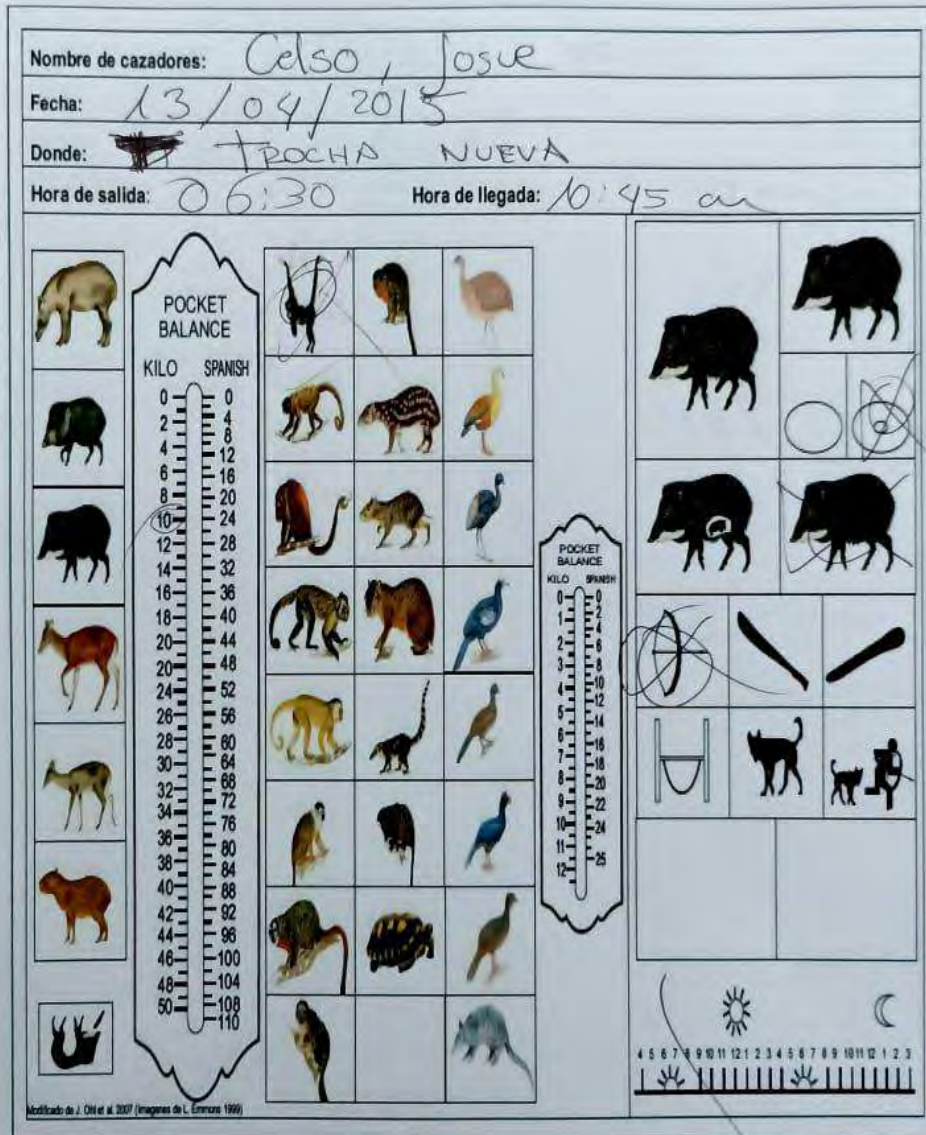 Nombre de cazadores: Celso, Josue
Fecha: 13/04/2015
Donde: TROCHA NUEVA
Hora de salida: 06:30 Hora de llegada: 10:45 am
POCKET
BALANCE
KILO SPANISH
0 0
2 4
4 8
6 12
8 16
10 20
12 24
14 28
16 32
18 36
20 40
20 44
24 48
26 52
28 56
30 60
32 64
34 68
36 72
38 76
40 80
42 84
44 88
46 92
48 96
50 100
104
108
110
POCKET
BALANCE
KILO SPANISH
0 0
1 2
2 4
3 6
4 8
5 10
6 12
7 14
8 16
9 18
10 20
11 22
12 24
25
4 5 6 7 8 9 10 11 12 1 2 3 4 5 6 7 8 9 10 11 12 1 2 3
Modificado de J. Ohl et al. 2007 (Imagenes de L. Emmons 1999)